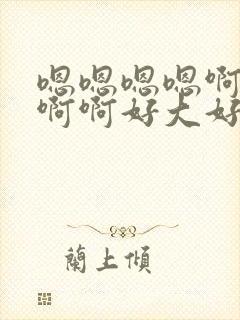 嗯嗯嗯嗯啊
啊啊好大好
蘭上傾